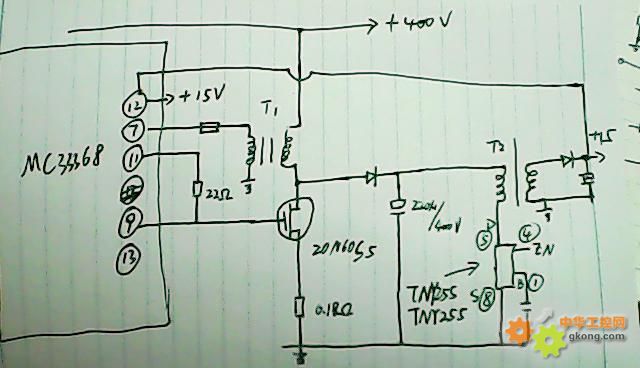 +400V
+15V
T1
T2
+15
12
7
11
9
13
MC33368
22Ω
20N60S5
0.18Ω
220μ/
400V
5
4
EN
TNY255
TNY255
S 8
1
中华工控网
gkong.com